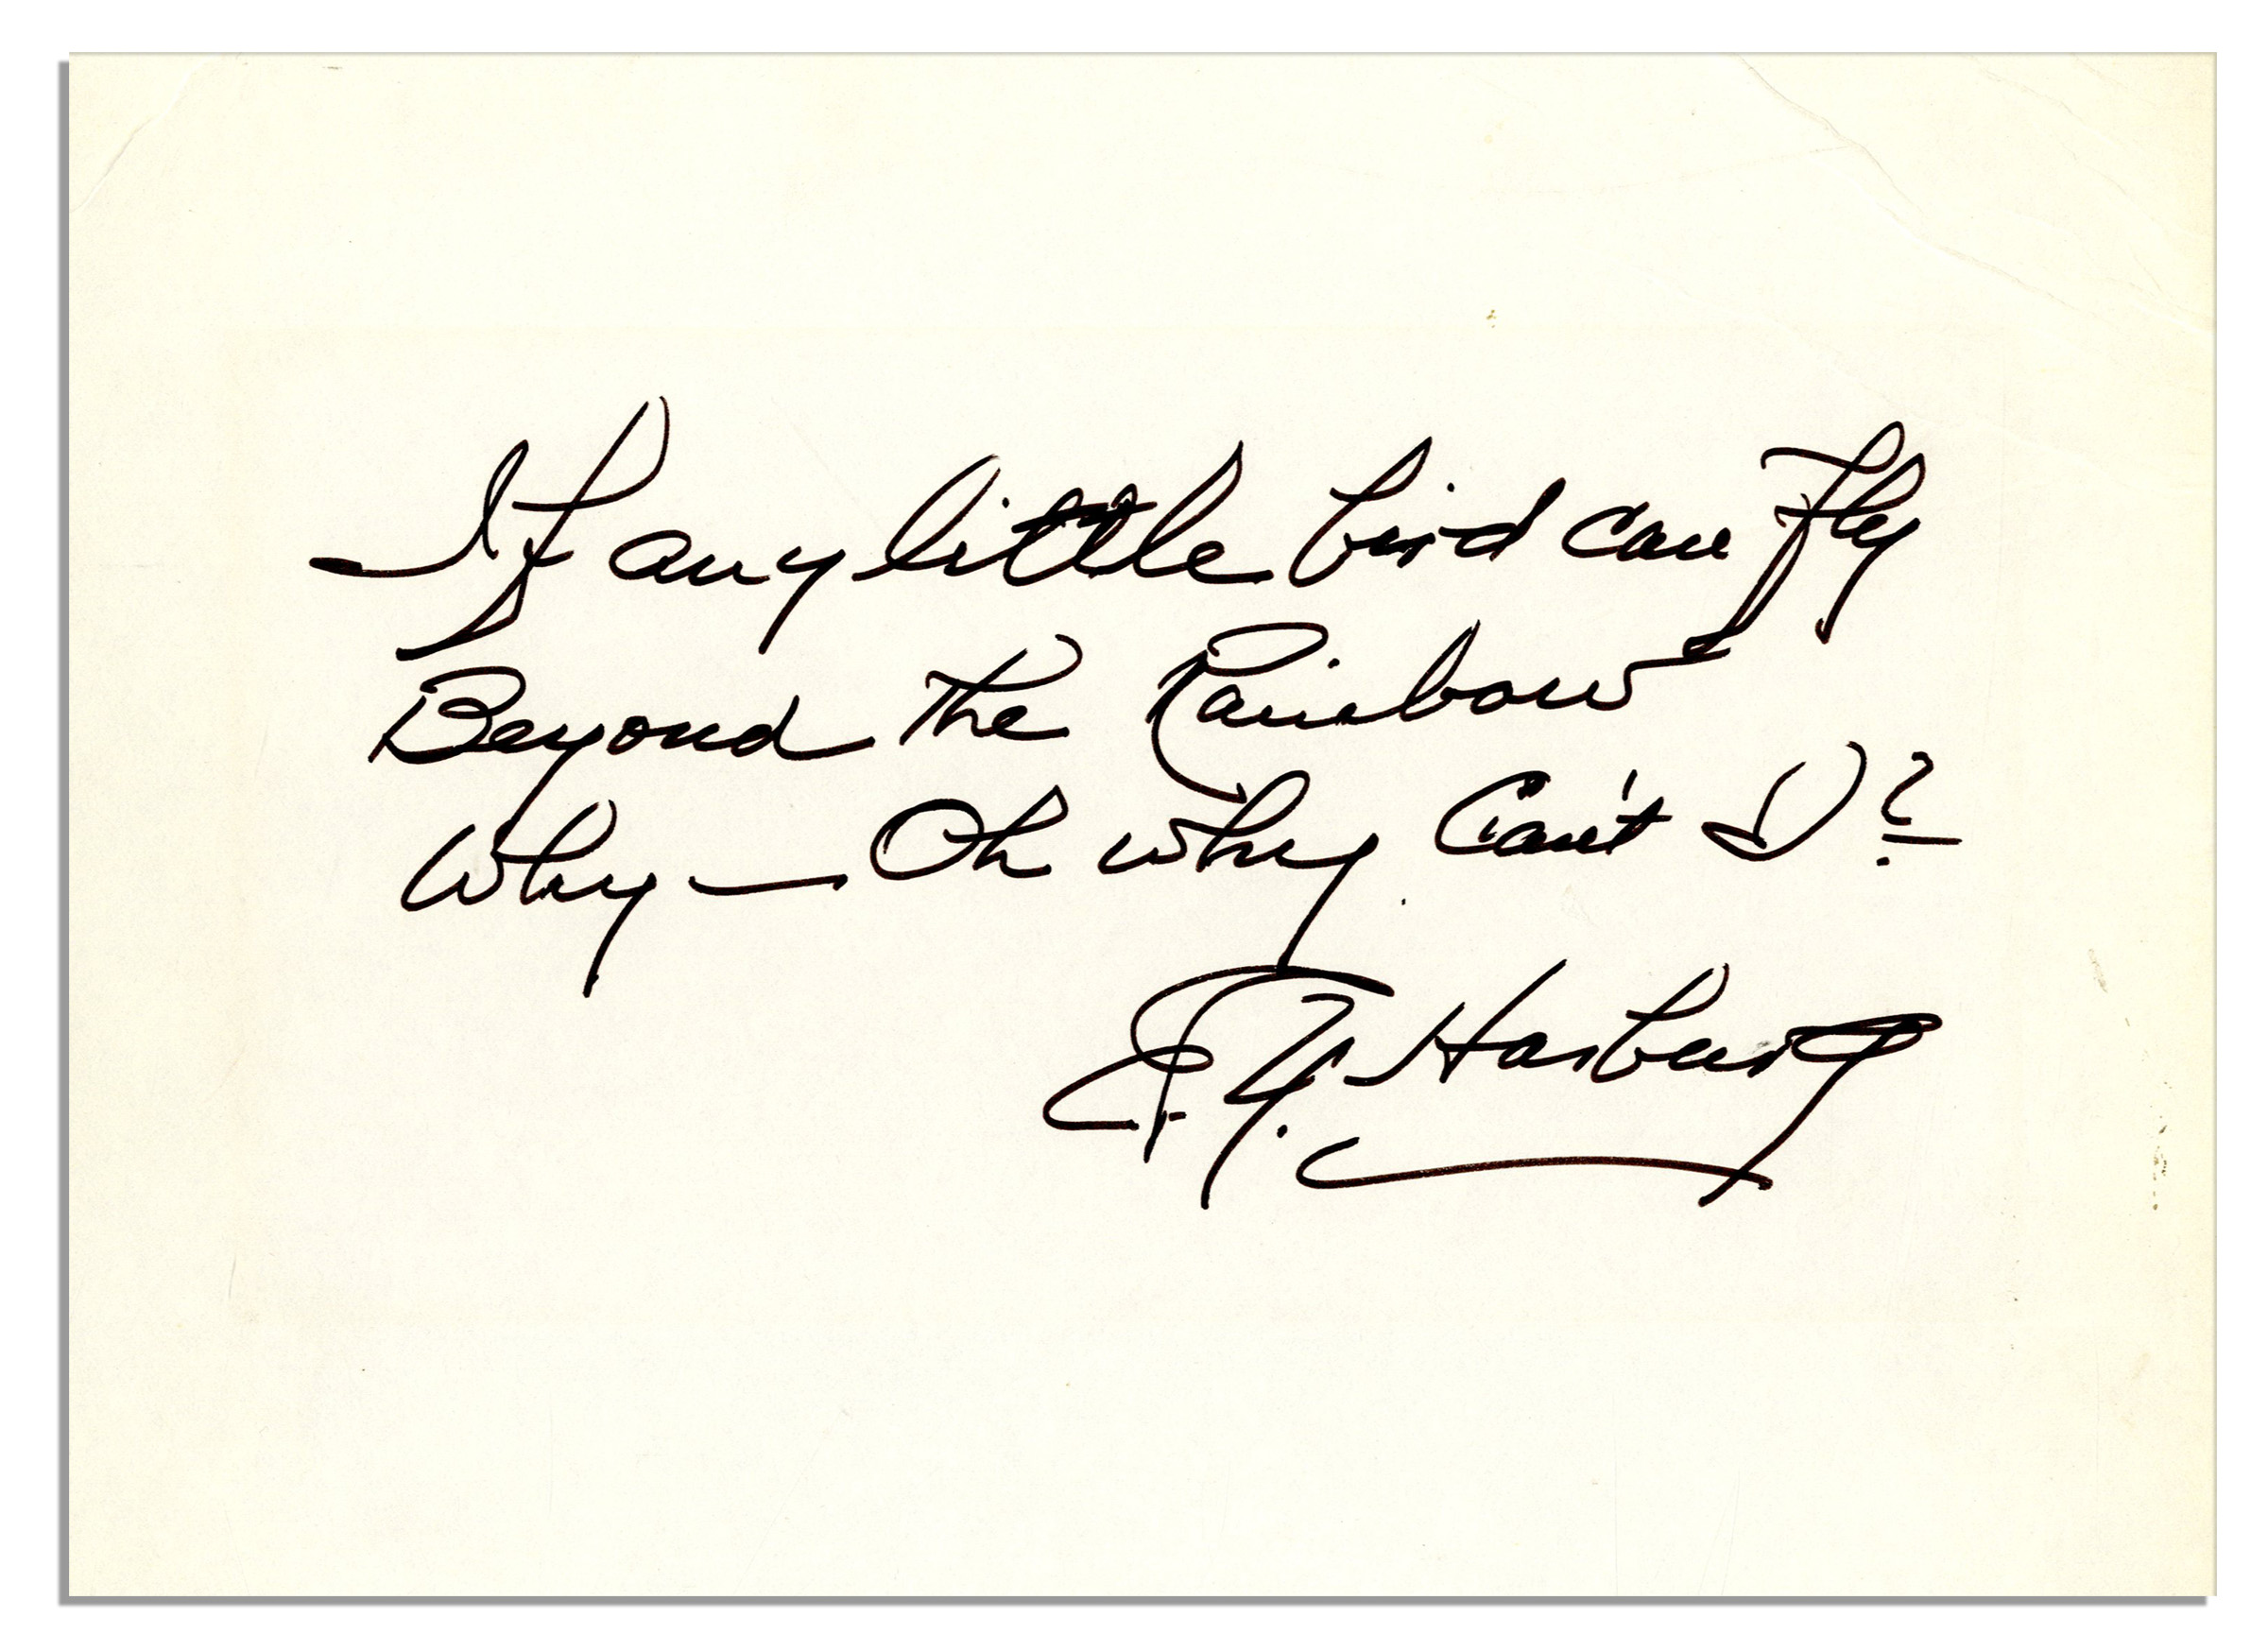 If any little bird can fly
Beyond the Rainbow
Why — Oh why Can't I?
E. Y. Harburg